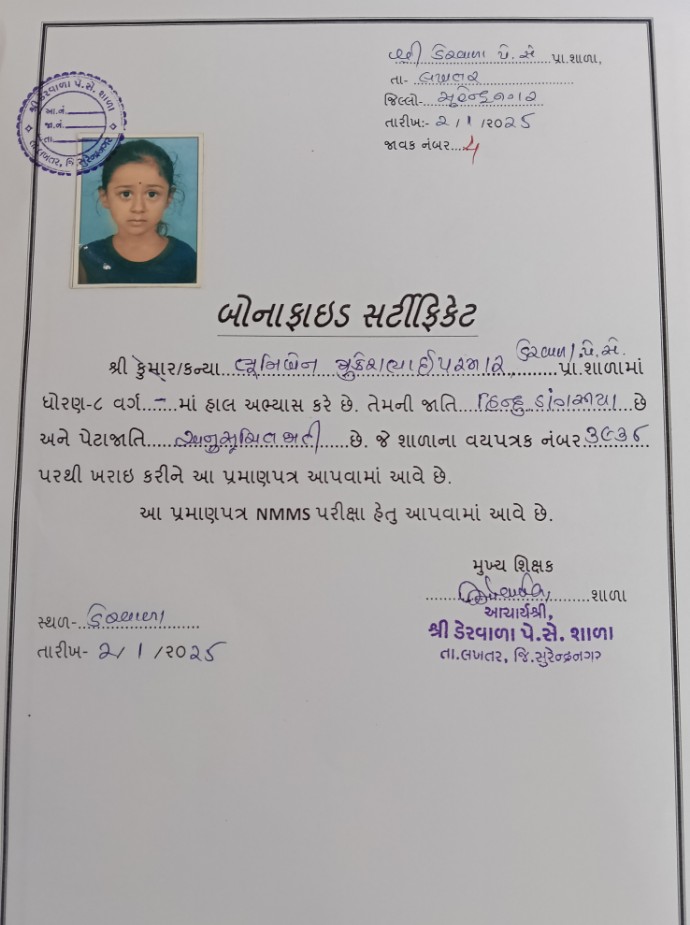 શ્રી ડેરવાળા પે.સે પ્રા.શાળા,
તા- લખતર
જિલ્લો- સુરેન્દ્રનગર
તારીખ:- 2/1/૨૦25
જાવક નંબર....4
શ્રી ડેરવાળા પે.સે. શાળા
આ.નં.
જા.નં.
તા.
તા.લખતર, જિ.સુરેન્દ્રનગર
બોનાફાઇડ સર્ટીફિકેટ
ડેરવાળા પે.સે.
શ્રી કુમાર/કન્યા મુકેશભાઈ પરમાર પ્રા.શાળામાં
ધોરણ-૮ વર્ગ - માં હાલ અભ્યાસ કરે છે. તેમની જાતિ હિન્દુ ડાંગસીયા છે
અને પેટાજાતિ અનુસૂચિત જાતી છે. જે શાળાના વયપત્રક નંબર
પરથી ખરાઇ કરીને આ પ્રમાણપત્ર આપવામાં આવે છે.
આ પ્રમાણપત્ર NMMS પરીક્ષા હેતુ આપવામાં આવે છે.
મુખ્ય શિક્ષક
શાળા
આચાર્યશ્રી,
શ્રી ડેરવાળા પે.સે. શાળા
તા.લખતર, જિ.સુરેન્દ્રનગર
સ્થળ- ડેરવાળા
તારીખ- 2/1/૨૦25